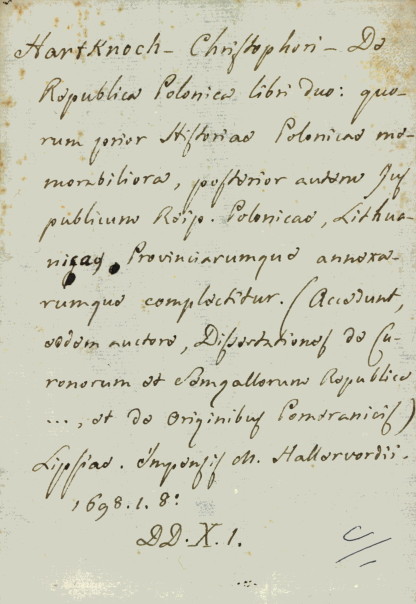 Hartknoch - Christophori - De
Republica Polonica libri duo: quo-
rum prior Historiae Polonicae me-
morabiliora, posterior autem Jus
publicum Reip. Polonicae, Lithua-
nicae Provinciarumque annexa-
rumque complectitur. (Accedunt,
eodem auctore, Dissertationes de Cu-
ronorum et Semgallorum Republica
..., et de Originibus Pomeranicis)
Lipsiae. impensis M. Hallervordii.
1698. 1. 8:
DD. X. 1.